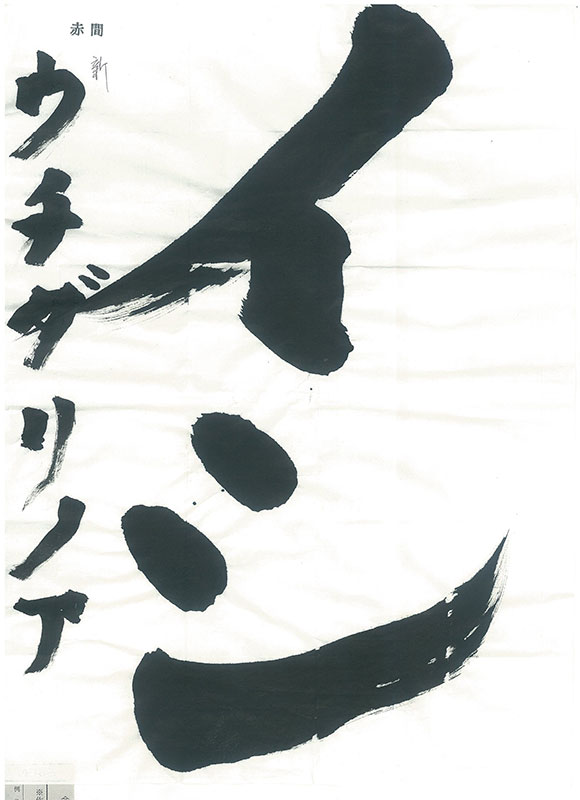 イン
赤間
新
ウチダリノア